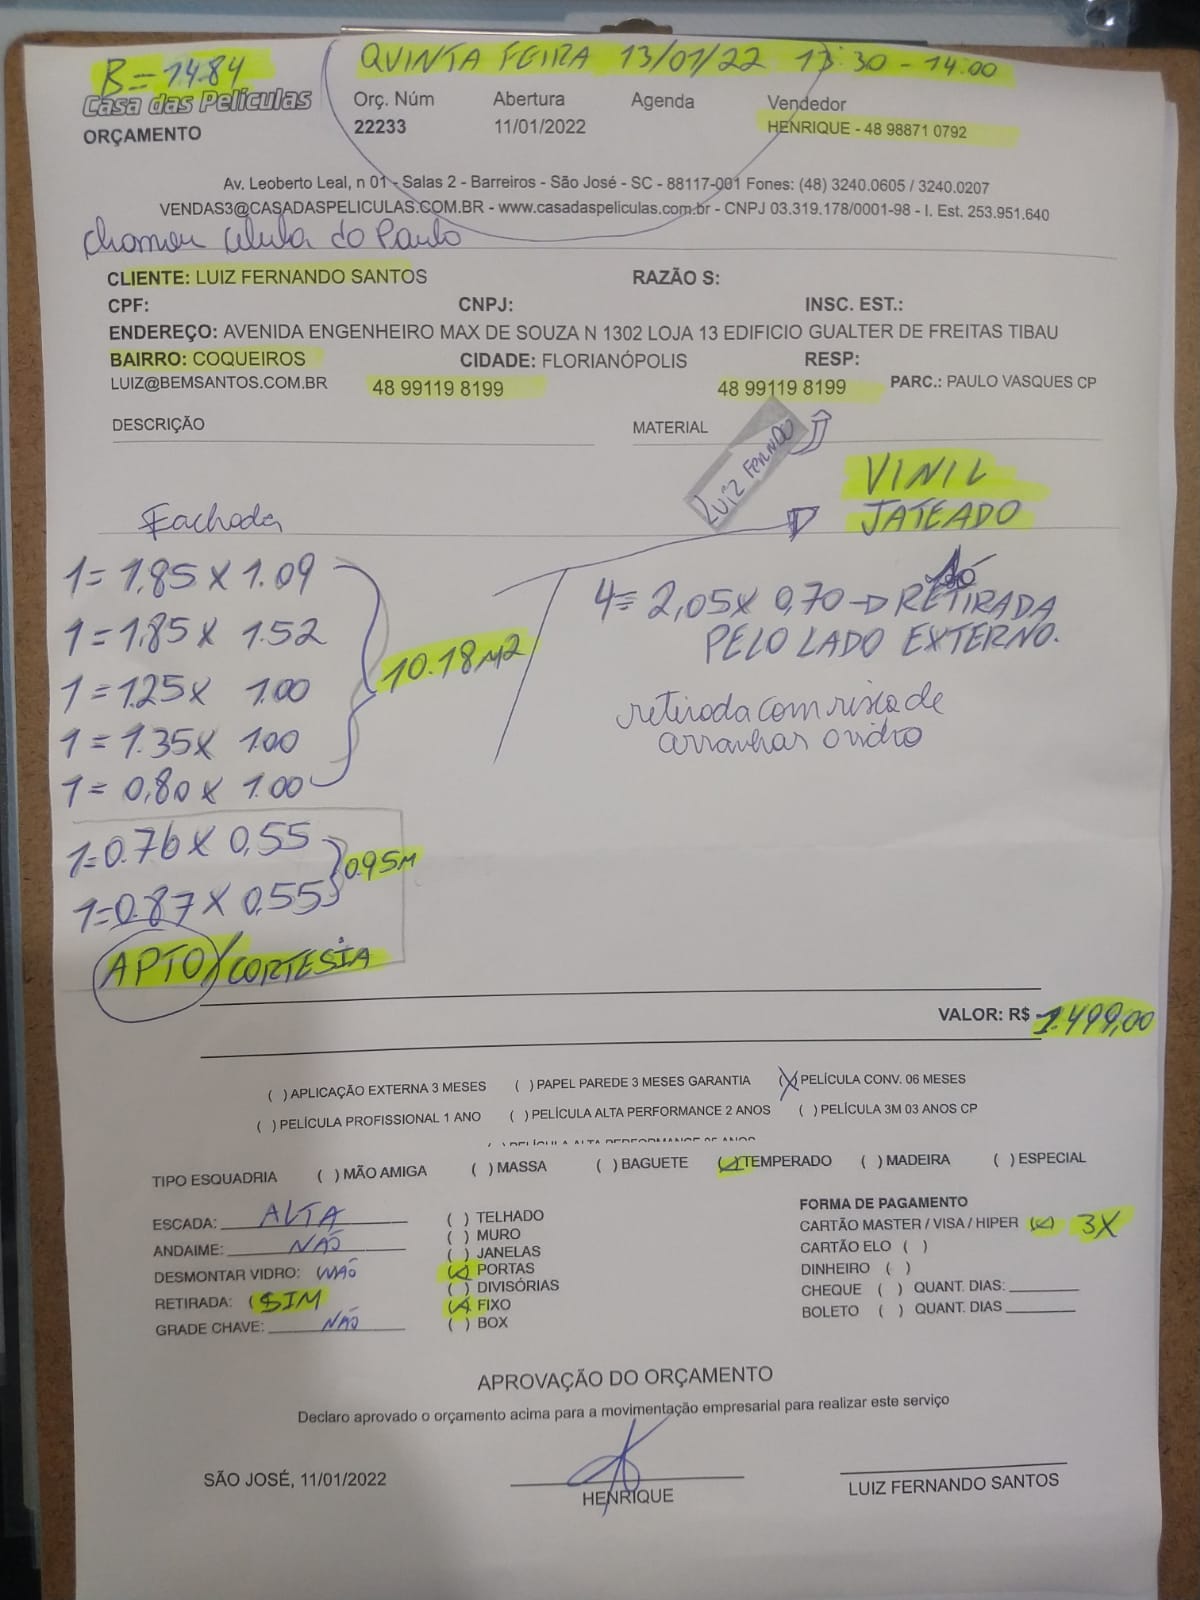 B=14.84
QUINTA FEIRA 13/01/22 13:30 - 14:00
Casa das Películas
Orç. Núm Abertura Agenda Vendedor
ORÇAMENTO 22233 11/01/2022 HENRIQUE - 48 98871 0792
Av. Leoberto Leal, n 01 - Salas 2 - Barreiros - São José - SC - 88117-001 Fones: (48) 3240.0605 / 3240.0207
VENDAS3@CASADASPELICULAS.COM.BR - www.casadaspeliculas.com.br - CNPJ 03.319.178/0001-98 - I. Est. 253.951.640
do Paulo
CLIENTE: LUIZ FERNANDO SANTOS RAZÃO S:
CPF: CNPJ: INSC. EST.:
ENDEREÇO: AVENIDA ENGENHEIRO MAX DE SOUZA N 1302 LOJA 13 EDIFICIO GUALTER DE FREITAS TIBAU
BAIRRO: COQUEIROS CIDADE: FLORIANÓPOLIS RESP:
LUIZ@BEMSANTOS.COM.BR 48 99119 8199 48 99119 8199 PARC.: PAULO VASQUES CP
DESCRIÇÃO MATERIAL
LUIZ FERNNDO
VINIL
JATEADO
Fachada
1= 1.85 X 1.09
1= 1.85 X 1.52
1= 1.25 X 1.00
1= 1.35 X 1.00
1= 0,80 X 1.00
10.18 M2
4= 2,05 X 0,70 → RETIRADA
PELO LADO EXTERNO.
retirada com risco de
arranhar o vidro
1=0.76 X 0,55
1=0.87 X 0.55
0.95M
APTO/CORTESIA
VALOR: R$ 1.499,00
( ) APLICAÇÃO EXTERNA 3 MESES ( ) PAPEL PAREDE 3 MESES GARANTIA (X) PELÍCULA CONV. 06 MESES
( ) PELÍCULA PROFISSIONAL 1 ANO ( ) PELÍCULA ALTA PERFORMANCE 2 ANOS ( ) PELÍCULA 3M 03 ANOS CP
TIPO ESQUADRIA ( ) MÃO AMIGA ( ) MASSA ( ) BAGUETE (X) TEMPERADO ( ) MADEIRA ( ) ESPECIAL
ESCADA: ALTA
ANDAIME: NÃO
DESMONTAR VIDRO: NÃO
RETIRADA: (SIM
GRADE CHAVE: NÃO
( ) TELHADO
( ) MURO
( ) JANELAS
(X) PORTAS
( ) DIVISÓRIAS
(X) FIXO
( ) BOX
FORMA DE PAGAMENTO
CARTÃO MASTER / VISA / HIPER (X) 3X
CARTÃO ELO ( )
DINHEIRO ( )
CHEQUE ( ) QUANT. DIAS:
BOLETO ( ) QUANT. DIAS
APROVAÇÃO DO ORÇAMENTO
Declaro aprovado o orçamento acima para a movimentação empresarial para realizar este serviço
SÃO JOSÉ, 11/01/2022 HENRIQUE LUIZ FERNANDO SANTOS